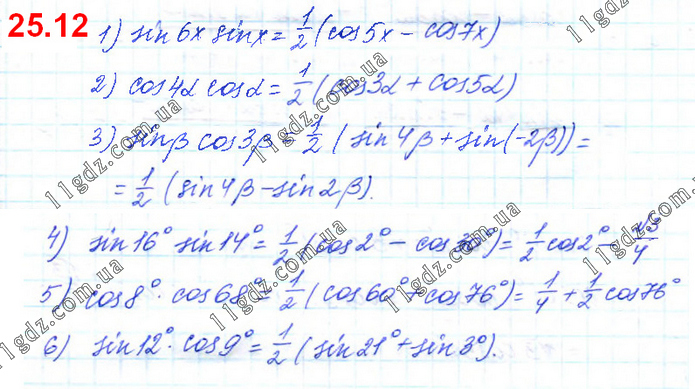 25.12
1) sin6x sinx = 1/2 (cos5x - cos7x)
2) cos4α cosα = 1/2 (cos3α + cos5α)
3) sinβ cos3β = 1/2 (sin4β + sin(-2β)) =
= 1/2 (sin4β - sin2β).
4) sin16° sin14° = 1/2 (cos2° - cos30°) = 1/2 cos2° - √3/4
5) cos8° · cos68° = 1/2 (cos60° + cos76°) = 1/4 + 1/2 cos76°
6) sin12° · cos9° = 1/2 (sin21° + sin3°).
11gdz.com.ua
11gdz.com.ua
11gdz.com.ua
11gdz.com.ua
11gdz.com.ua
11gdz.com.ua